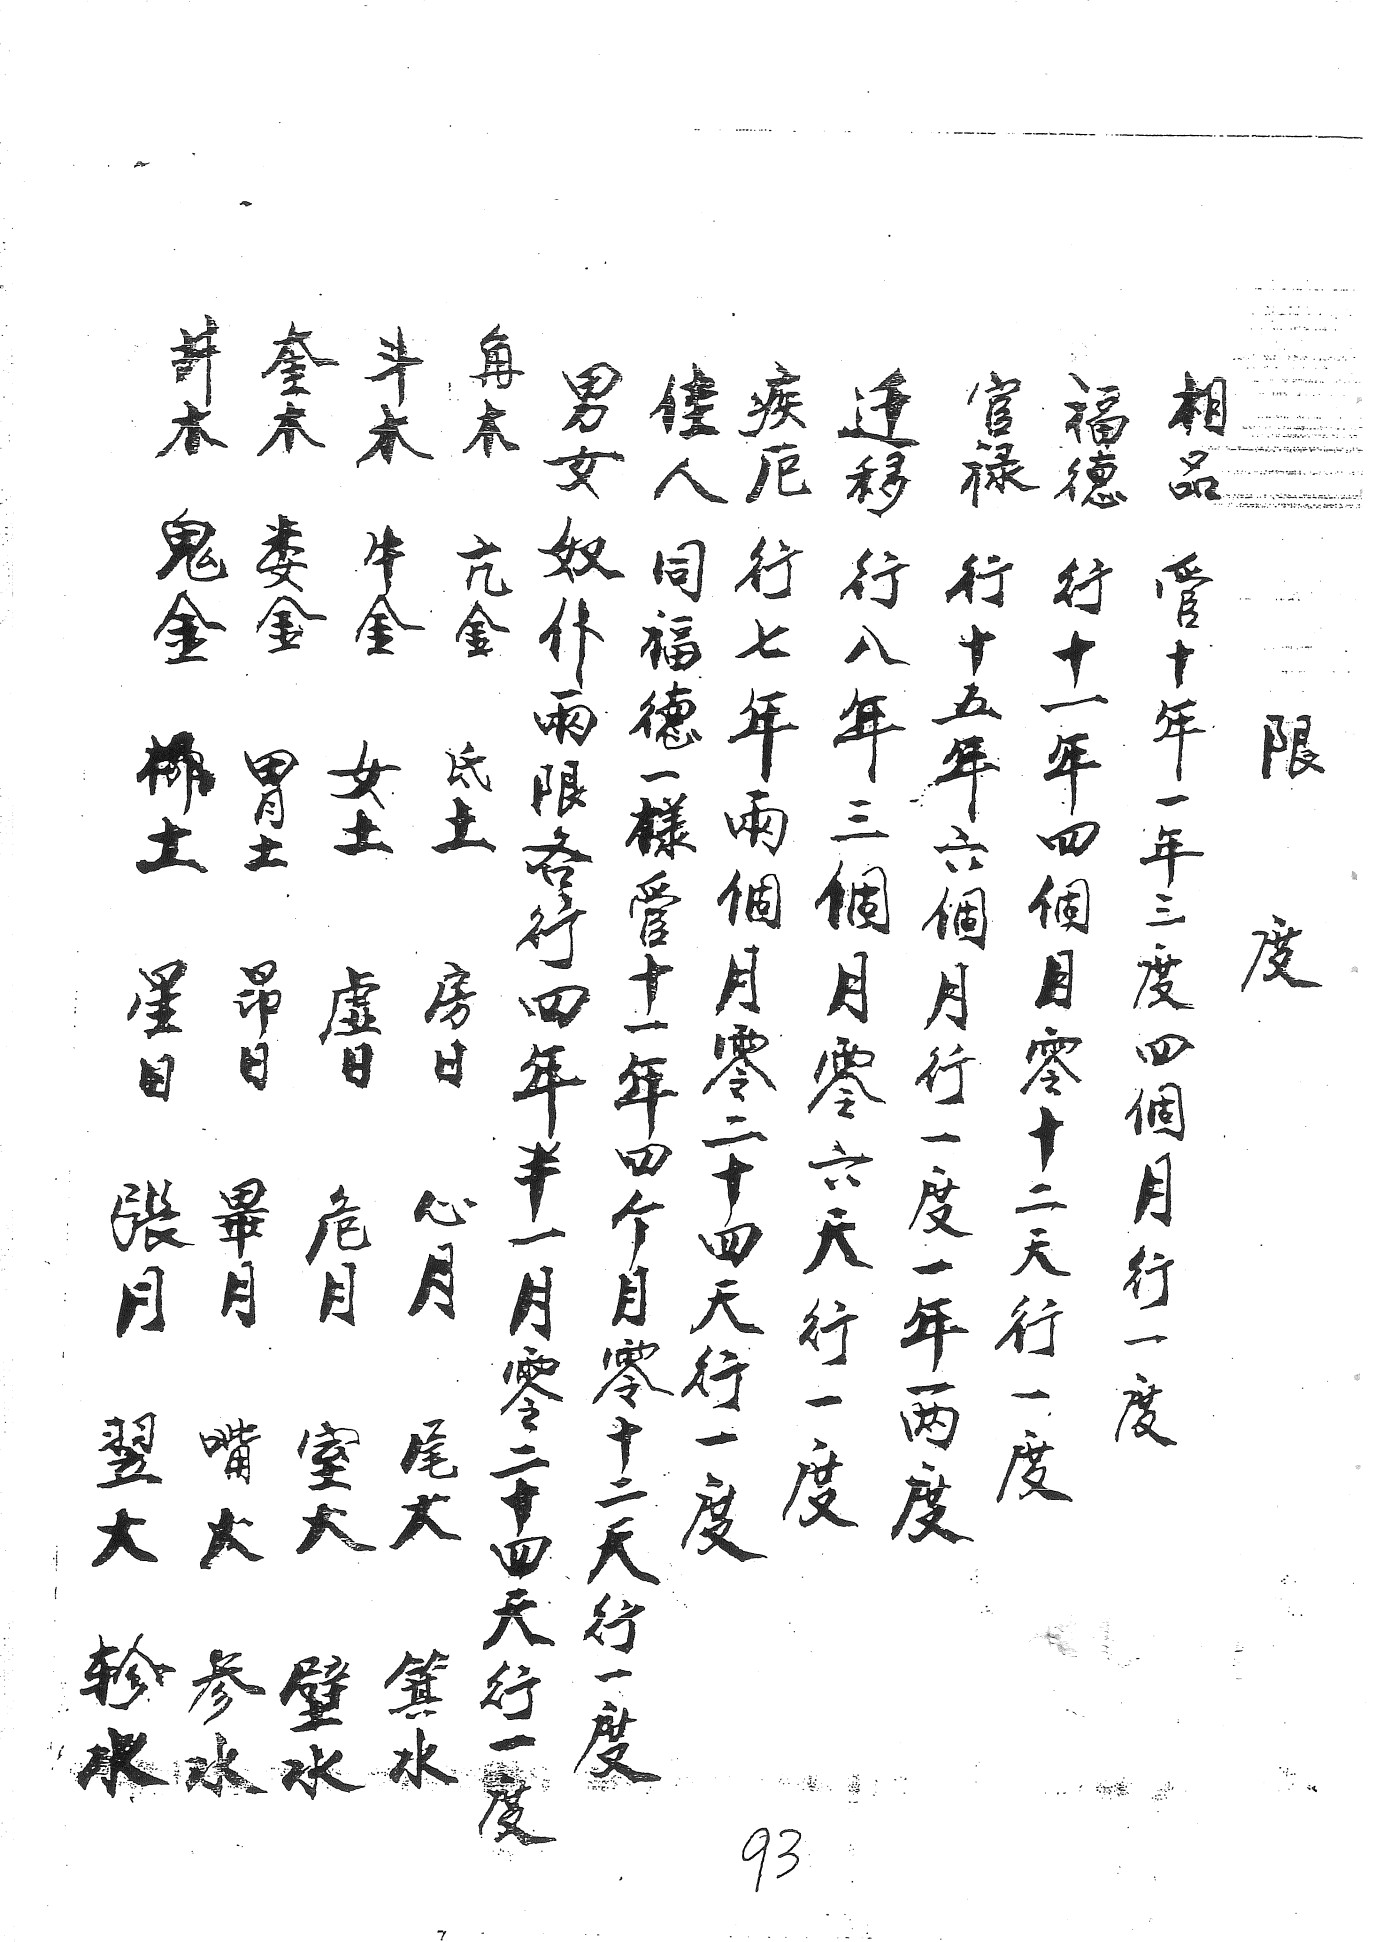 限度
相品 管十年一年三度四個月行一度
福德 行十一年四個月零十二天行一度
官禄 行十五年六個月行一度一年两度
迁移 行八年三個月零六天行一度
疾厄 行七年兩個月零二十四天行一度
人 同福德一樣管十一年四个月零十二天行一度
男女奴仆兩限各行四年半一月零二十四天行一度
角木 亢金 氐土 房日 心月 尾火 箕水
斗木 牛金 女土 虚日 危月 室火 壁水
奎木 娄金 胃土 昴日 畢月 嘴火 参水
井木 鬼金 柳土 星日 張月 翌火 轸水
93